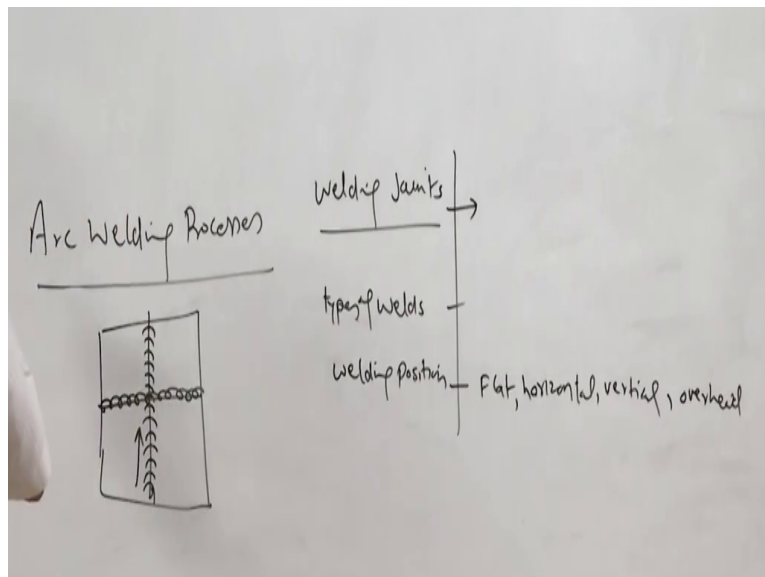 Arc Welding Processes
Welding Joints
types of welds
Welding position
Flat, horizontal, vertical, overhead